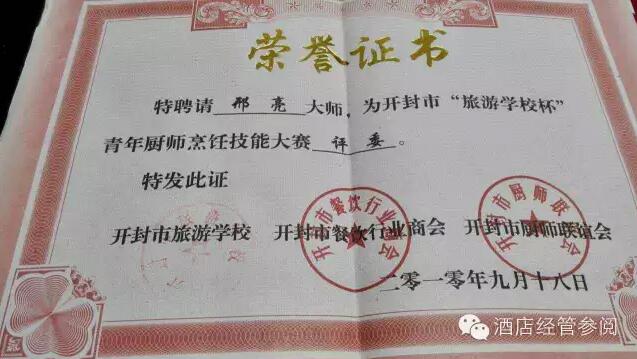 荣誉证书
特聘请 邢亮 大师，为开封市“旅游学校杯”
青年厨师烹饪技能大赛 评委 。
特发此证
开封市旅游学校 开封市餐饮行业商会 开封市厨师联谊会
开封市餐饮行业商会
开封市厨师联谊会
二零一零年九月十八日
酒店经管参阅